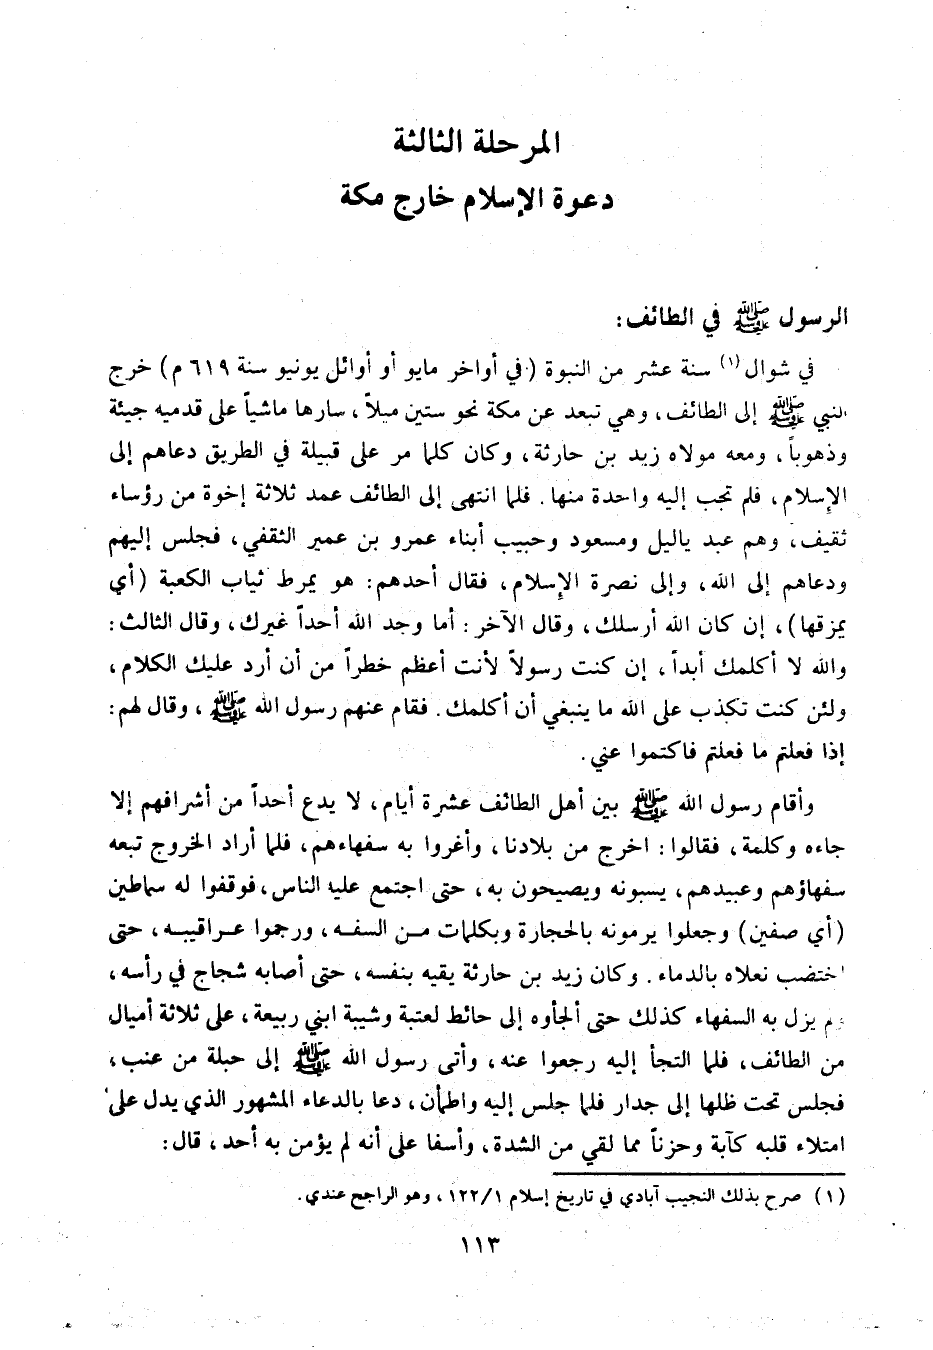 المرحلة الثالثة
دعوة الإسلام خارج مكة
الرسول ﷺ في الطائف:
في شوال(١) سنة عشر من النبوة (في أواخر مايو أو أوائل يونيو سنة ٦١٩ م) خرج
النبي ﷺ إلى الطائف، وهي تبعد عن مكة نحو ستين ميلاً، سارها ماشياً على قدميه جيئة
وذهوباً، ومعه مولاه زيد بن حارثة، وكان كلما مر على قبيلة في الطريق دعاهم إلى
الإسلام، فلم تجب إليه واحدة منها. فلما انتهى إلى الطائف عمد ثلاثة إخوة من رؤساء
ثقيف، وهم عبد ياليل ومسعود وحبيب أبناء عمرو بن عمير الثقفي، فجلس إليهم
ودعاهم إلى الله، وإلى نصرة الإسلام، فقال أحدهم: هو يمرط ثياب الكعبة (أي
يمزقها)، إن كان الله أرسلك، وقال الآخر: أما وجد الله أحداً غيرك، وقال الثالث:
والله لا أكلمك أبداً، إن كنت رسولاً لأنت أعظم خطراً من أن أرد عليك الكلام،
ولئن كنت تكذب على الله ما ينبغي أن أكلمك. فقام عنهم رسول الله ﷺ، وقال لهم:
إذا فعلتم ما فعلتم فاكتموا عني.
وأقام رسول الله ﷺ بين أهل الطائف عشرة أيام، لا يدع أحداً من أشرافهم إلا
جاءه وكلمة، فقالوا: اخرج من بلادنا، وأغروا به سفهاءهم، فلما أراد الخروج تبعه
سفهاؤهم وعبيدهم، يسبونه ويصيحون به، حتى اجتمع عليه الناس، فوقفوا له سماطين
(أي صفين) وجعلوا يرمونه بالحجارة وبكلمات من السفه، ورجموا عراقيبه، حتى
اختضب نعلاه بالدماء. وكان زيد بن حارثة يقيه بنفسه، حتى أصابه شجاج في رأسه،
ولم يزل به السفهاء كذلك حتى ألجأوه إلى حائط لعتبة وشيبة ابني ربيعة، على ثلاثة أميال
من الطائف، فلما التجأ إليه رجعوا عنه، وأتى رسول الله ﷺ إلى حبلة من عنب،
فجلس تحت ظلها إلى جدار فلما جلس إليه واطمأن، دعا بالدعاء المشهور الذي يدل على
امتلاء قلبه كآبة وحزناً مما لقي من الشدة، وأسفا على أنه لم يؤمن به أحد، قال:
(١) صرح بذلك النجيب آبادي في تاريخ إسلام ١٢٢/١، وهو الراجح عندي.
١١٣